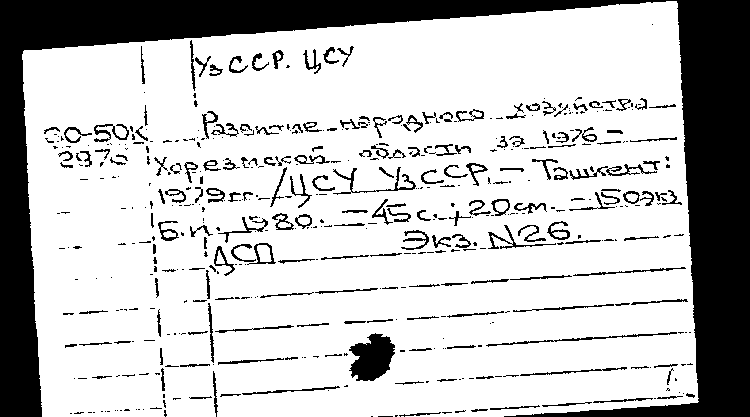 УзССР. ЦСУ
ЗО-50К
2970
Развитие народного хозяйства
Хорезмской области за 1976 –
1979гг. /ЦСУ УзССР. – Ташкент:
Б.и., 1980. – 45 с.; 20 см. – 150экз
ДСП Экз. N26.